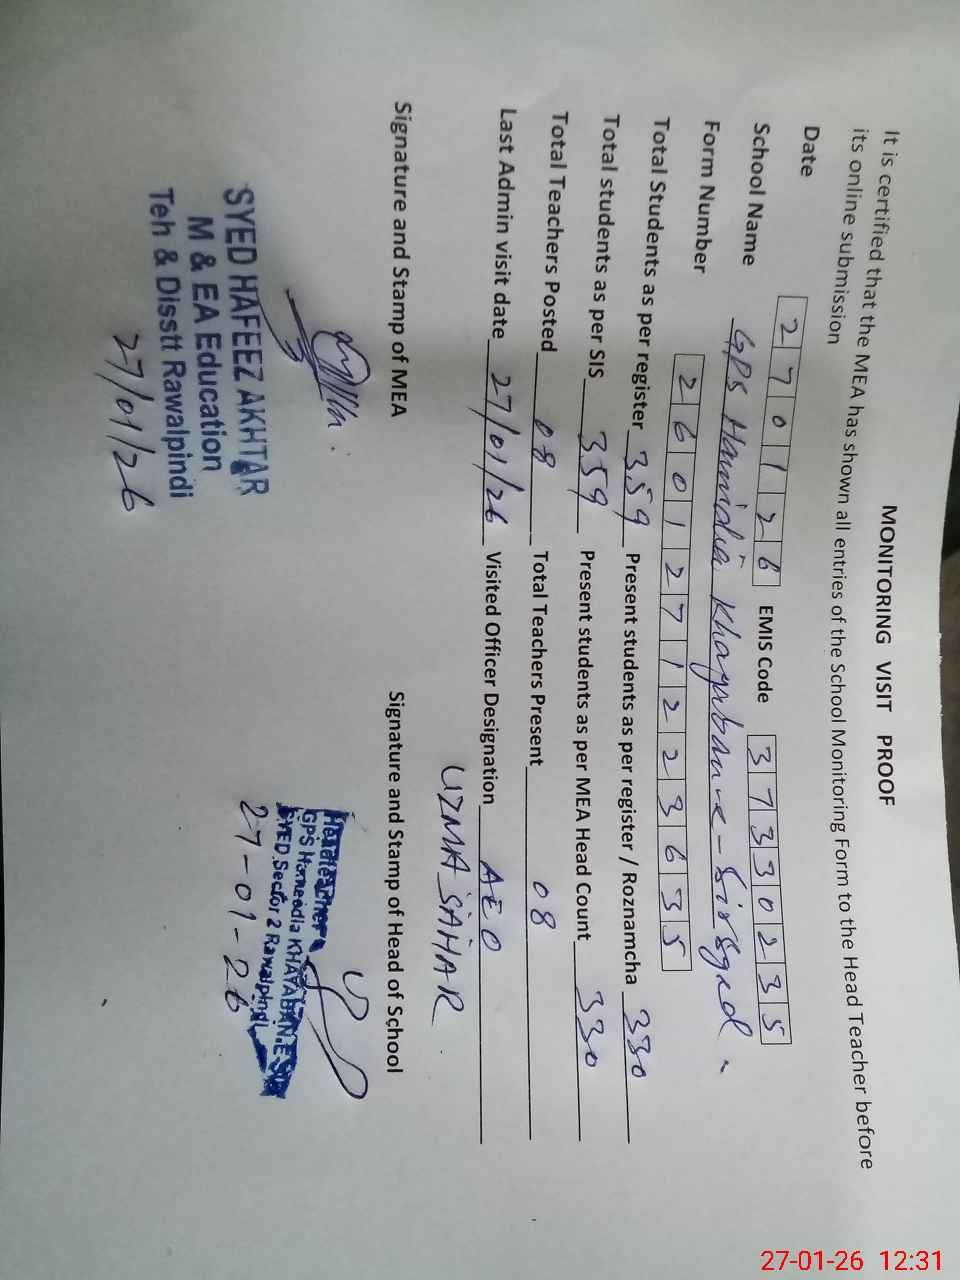 MONITORING VISIT PROOF
It is certified that the MEA has shown all entries of the School Monitoring Form to the Head Teacher before
its online submission
Date 270126 EMIS Code 37330235
School Name GPS Hamidia Khayaban-e-Sirsyed.
Form Number 2601271223635
Total Students as per register 359 Present students as per register / Roznamcha 330
Total students as per SIS 359 Present students as per MEA Head Count 330
Total Teachers Posted 08 Total Teachers Present 08
Last Admin visit date 27/01/26 Visited Officer Designation AEO
UZMA SAHAR
Signature and Stamp of MEA Signature and Stamp of Head of School
SYED HAFEEZ AKHTAR
M & EA Education
Teh & Disstt Rawalpindi
27/01/26
Headteacher
GPS Hameedia KHAYABAN.E
SYED Sector 2 Rawalpindi
27-01-26
27-01-26 12:31